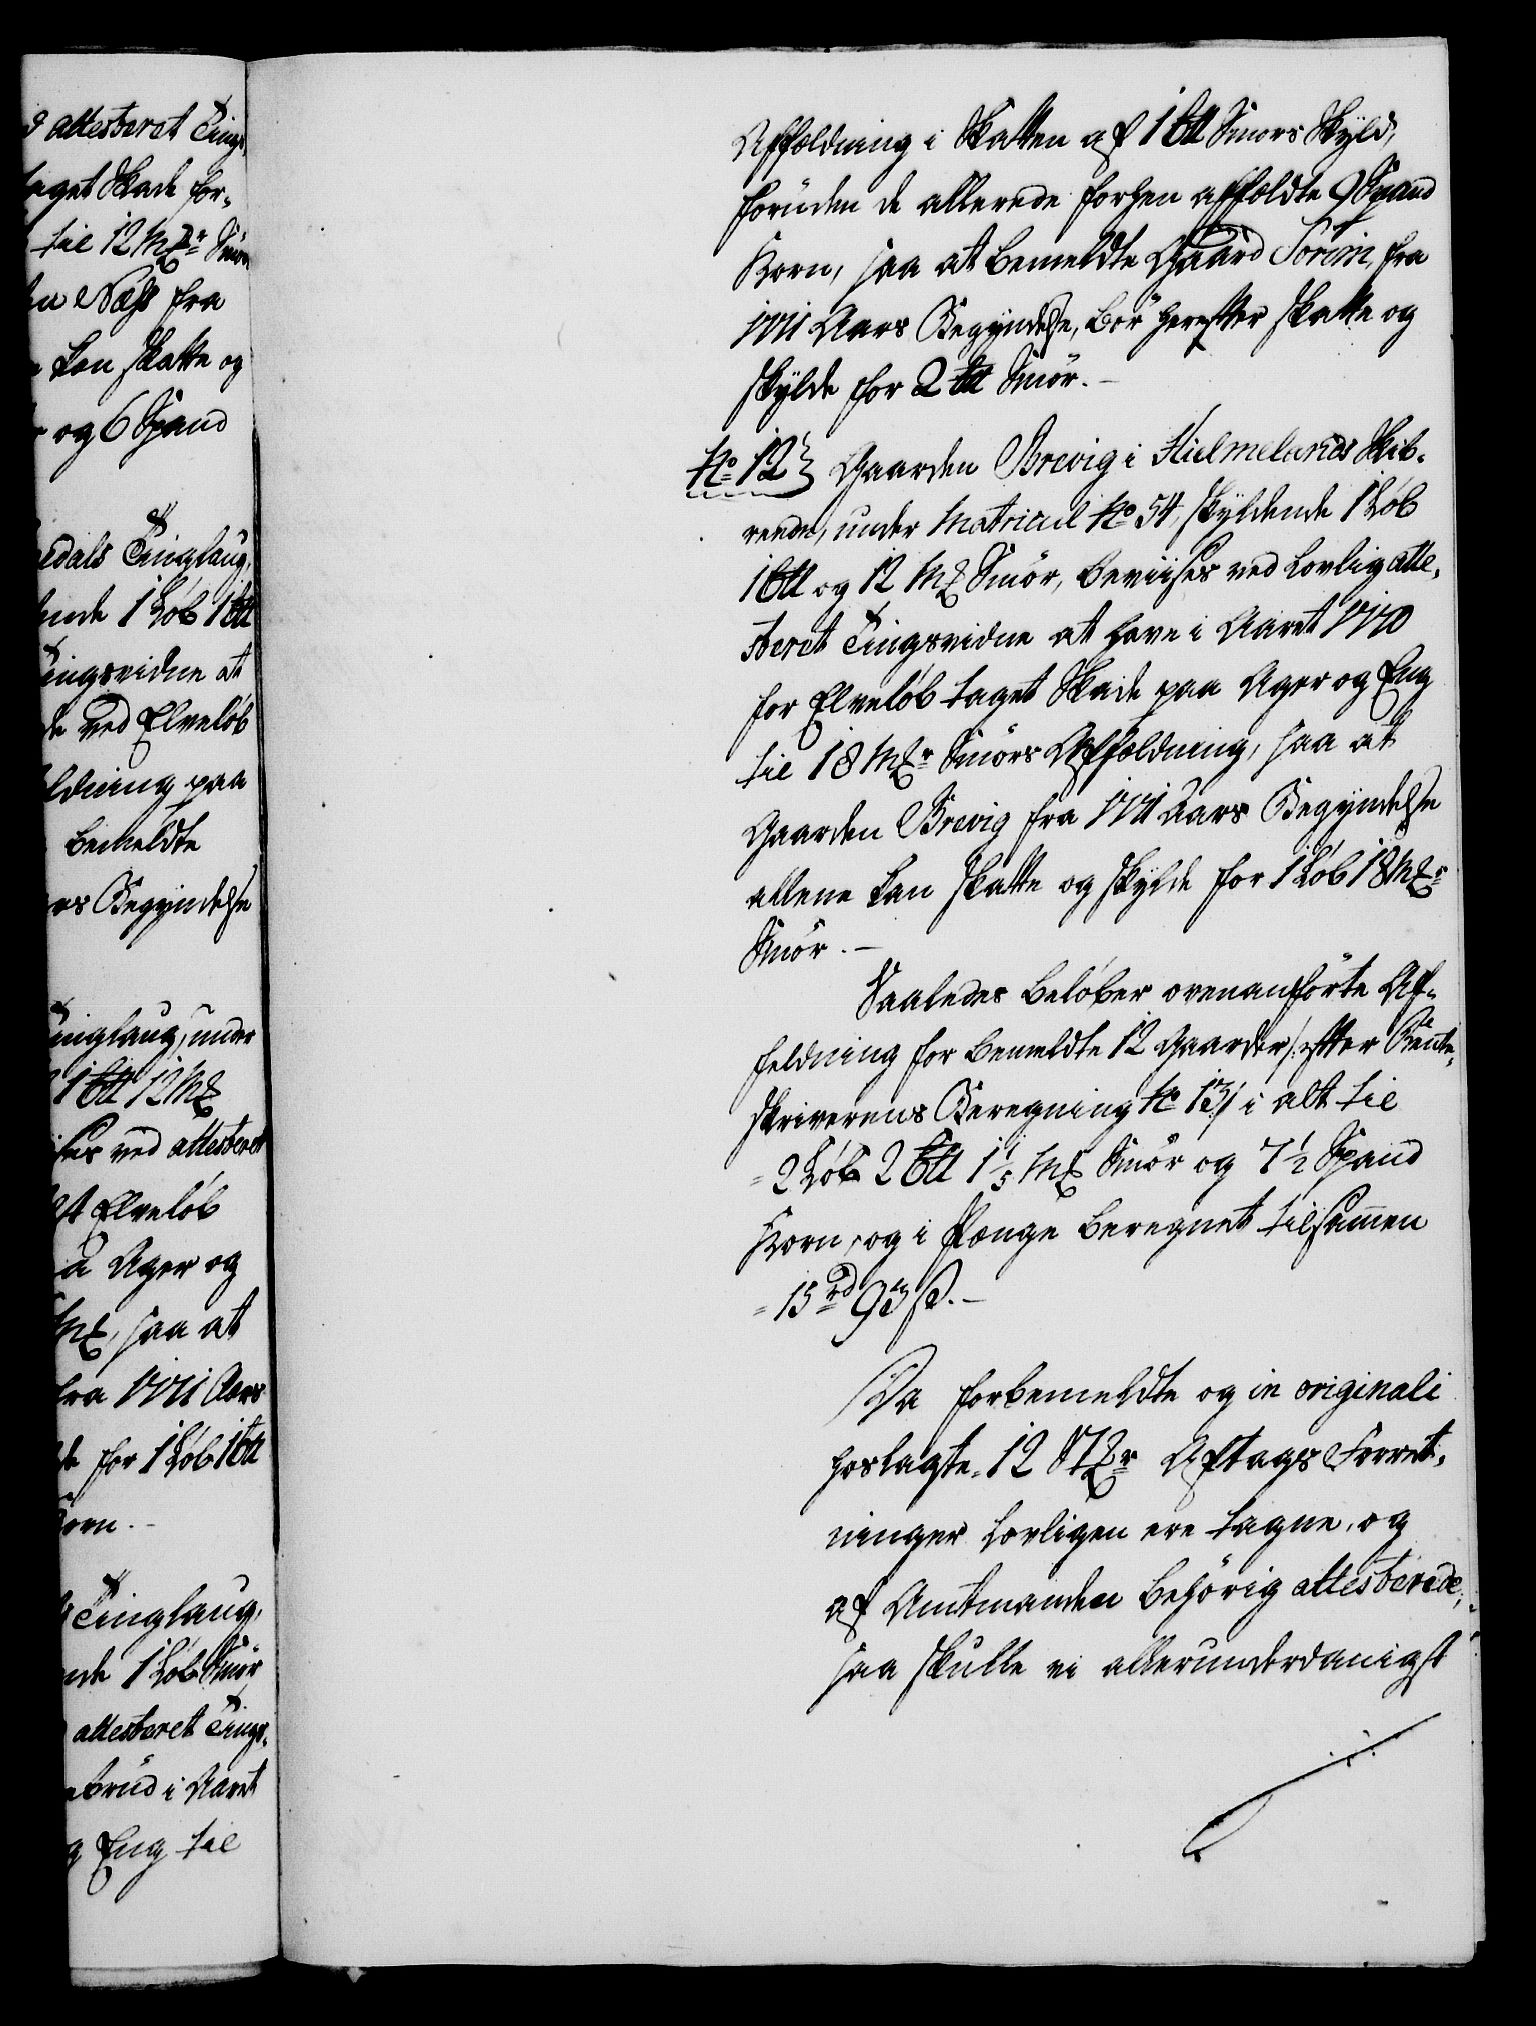 d attesteret Tings-
taget Skade for-
til 12 Mkr Smörs
en Næss fra
kan skatte og
og 6 Spand
edals Tinglaug,
ende 1 Løb 1 ℔
Tingsvidne at
de ved Elveløb
ldning paa
bemeldte
ars Begyndelse
Tinglaug, under
1 ℔ 12 Mk
ises ved attesteret
Elveløb
a Ager og
Mk, saa at
fra 1771 Aars
de for 1 Løb 1 ℔
Korn.-
Tinglaug,
nde 1 Løb Smör
attesteret Tings-
brud i Aaret
g Eng til
Affældning i Skatten af 1 ℔ Smörs Skyld,
foruden de allerede forhen affældte 9 Spand
Korn, saa at bemeldte Gaard Söriim, fra
1771 Aars Begyndelse, bör herefter skatte og
skylde for 2 ℔ Smör.-
No 12} Gaarden Brevig i Hielmelands Skib-
rede, under Matricul No 54, skyldende 1 Løb
1 ℔ og 12 Mk Smör, beviises ved lovlig atte-
steret Tingsvidne at have i Aaret 1770
for Elveløb taget Skade paa Ager og Eng
til 18 Mkr Smörs Affældning, saa at
Gaarden Brevig fra 1771 Aars Begyndelse
allene kan skatte og skylde for 1 Løb 18 Mkr
Smör.-
Saaledes beløber ovenanförte Af-
feldning for bemeldte 12 Gaarder /: efter Rente-
skriverens Beregning No 13 :/ i alt til
= 2 Løb 2 ℔ 1 1/5 Mk Smör og 7 1/2 Spand
Korn, og i Penge beregnet tilsammen
= 15 rd 93 ß.-
Da forbemeldte og in originali
hoslagte 12 Stkr Aftags Forret-
ninger lovligen ere tagne, og
af Amtmanden behörig attesterede,
saa skulle vi allerunderdanigst